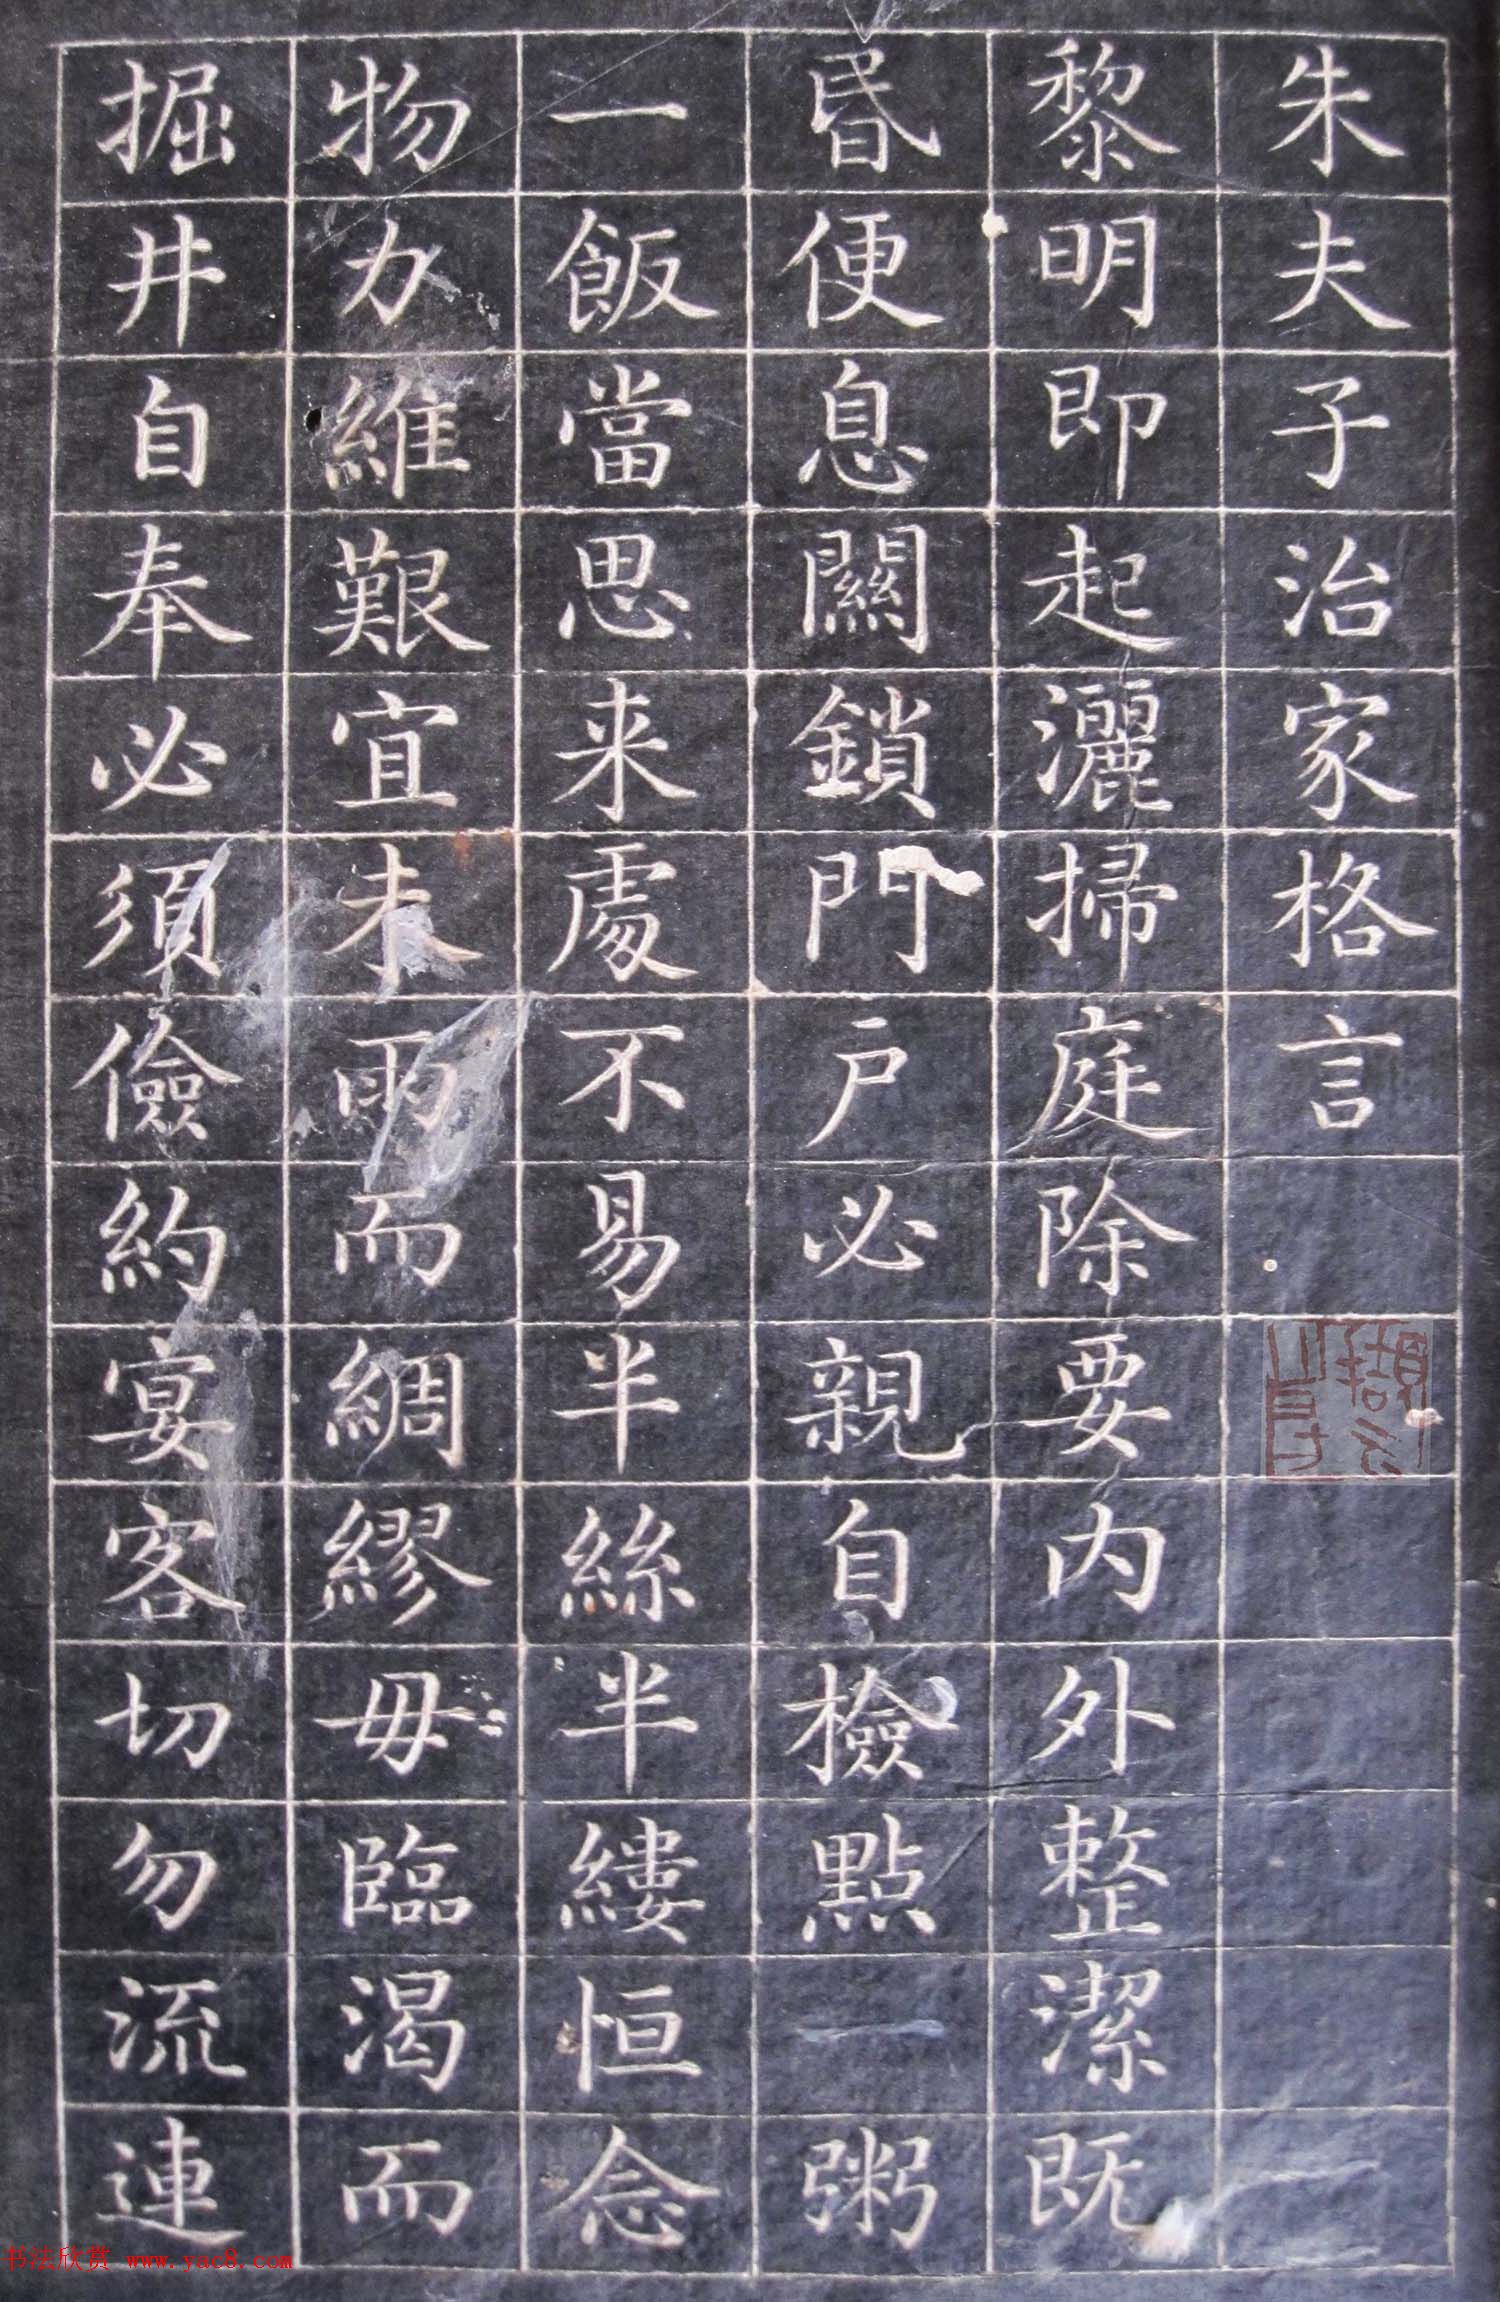 朱夫子治家格言
黎明即起灑掃庭除要内外整潔既
昏便息關鎖門户必親自檢點一粥
一飯當思来處不易半絲半縷恒念
物力維艱宜未雨而綢繆毋臨渴而
掘井自奉必須儉約宴客切勿流連
书法欣赏 www.yac8.com